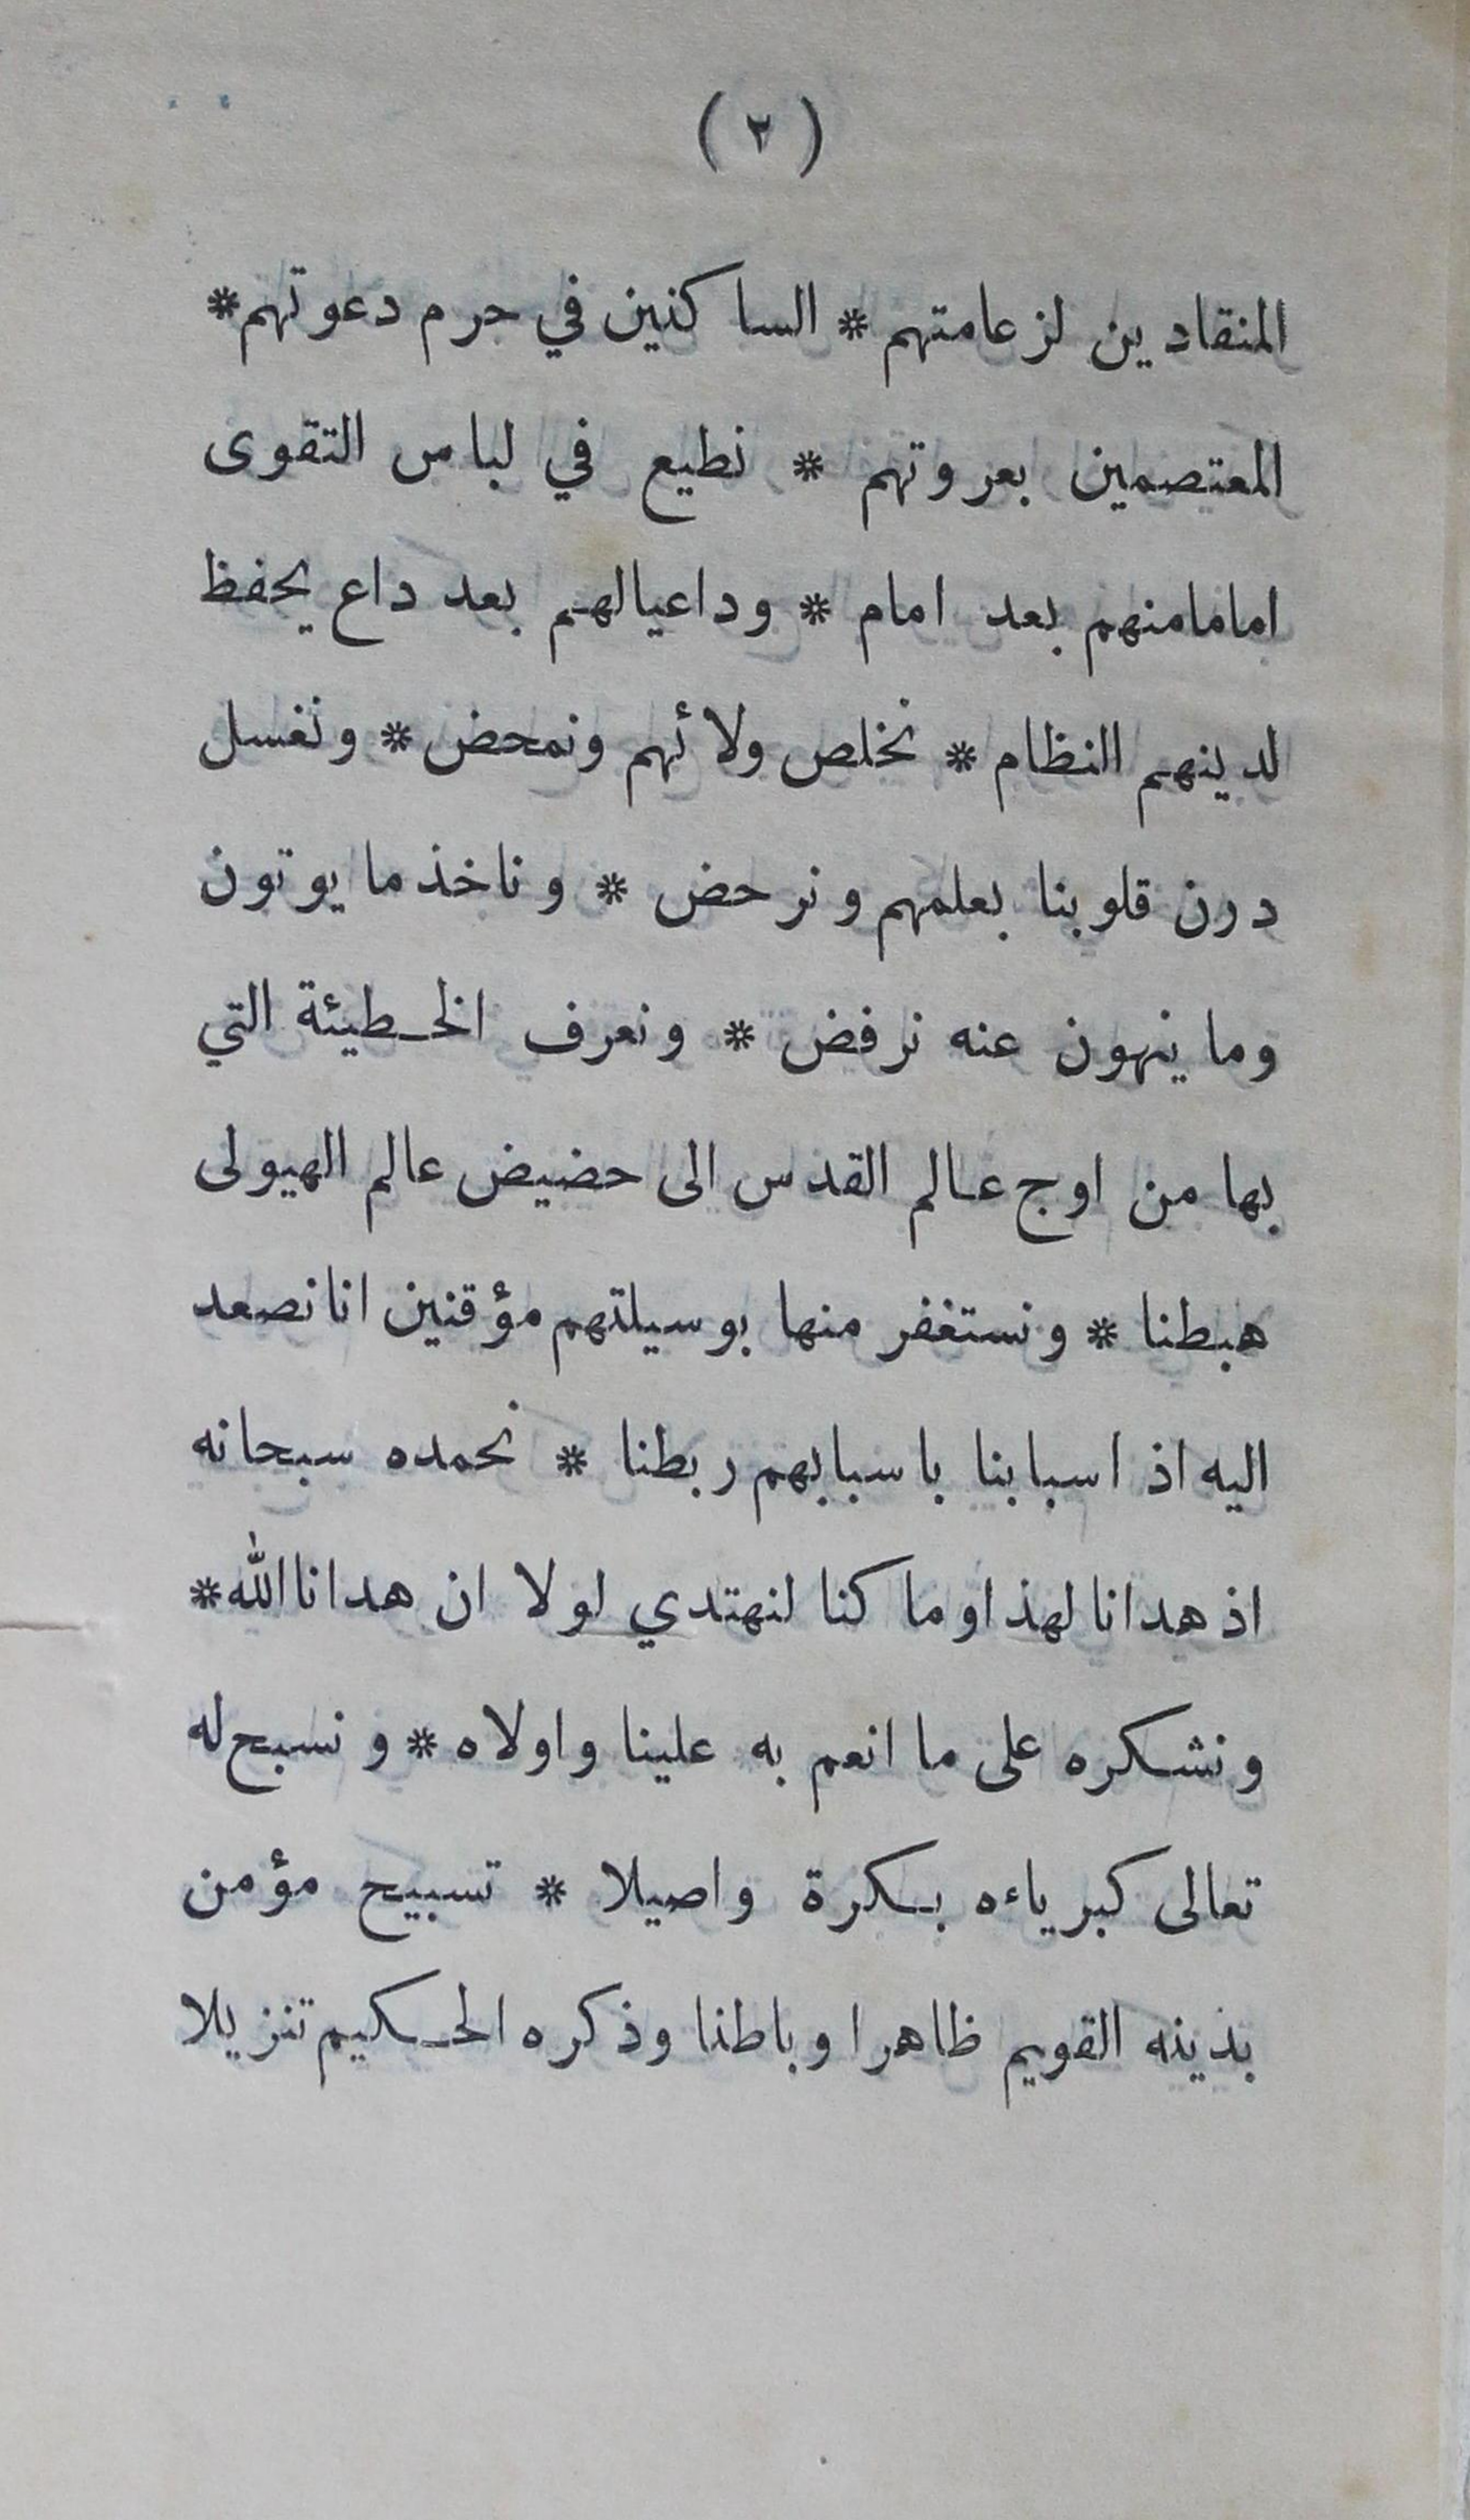 ( ٢ )
المنقادين لزعامتهم * الساكنين في حرم دعوتهم *
المعتصمين بعروتهم * نطيع في لباس التقوى
اماما منهم بعد امام * وداعيا لهم بعد داع يحفظ
لدينهم النظام * نخلص ولائهم ونمحض * ونغسل
درن قلوبنا بعلمهم ونرحض * وناخذ ما يوتون
وما ينهون عنه نرفض * ونعرف الخطيئة التي
بها من اوج عالم القدس الى حضيض عالم الهيولى
هبطنا * ونستغفر منها بوسيلتهم مؤقنين انا نصعد
اليه اذ اسبابنا باسبابهم ربطنا * نحمده سبحانه
اذ هدانا لهذا وما كنا لنهتدي لولا ان هدانا الله *
ونشكره على ما انعم به علينا واولاه * ونسبح له
تعالى كبرياءه بكرة واصيلا * تسبيح مؤمن
بدينه القويم ظاهرا وباطنا وذكره الحكيم تنزيلا